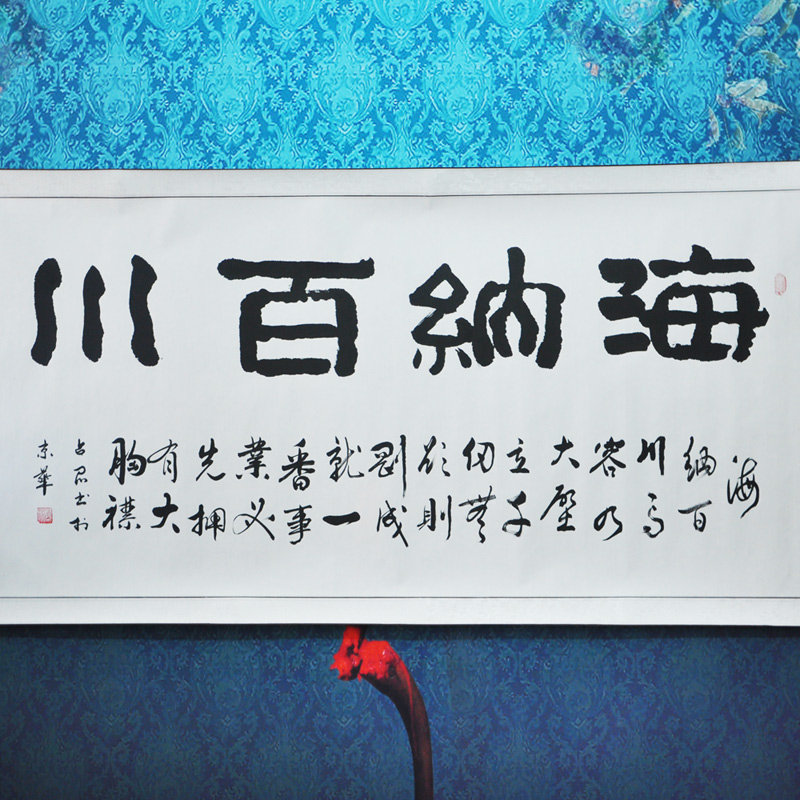 海納百川
海
納百
川有
容乃
大壁
立千
仞無
欲則
剛成
就一
番事
業必
先擁
有大
胸襟
占君书於
京華